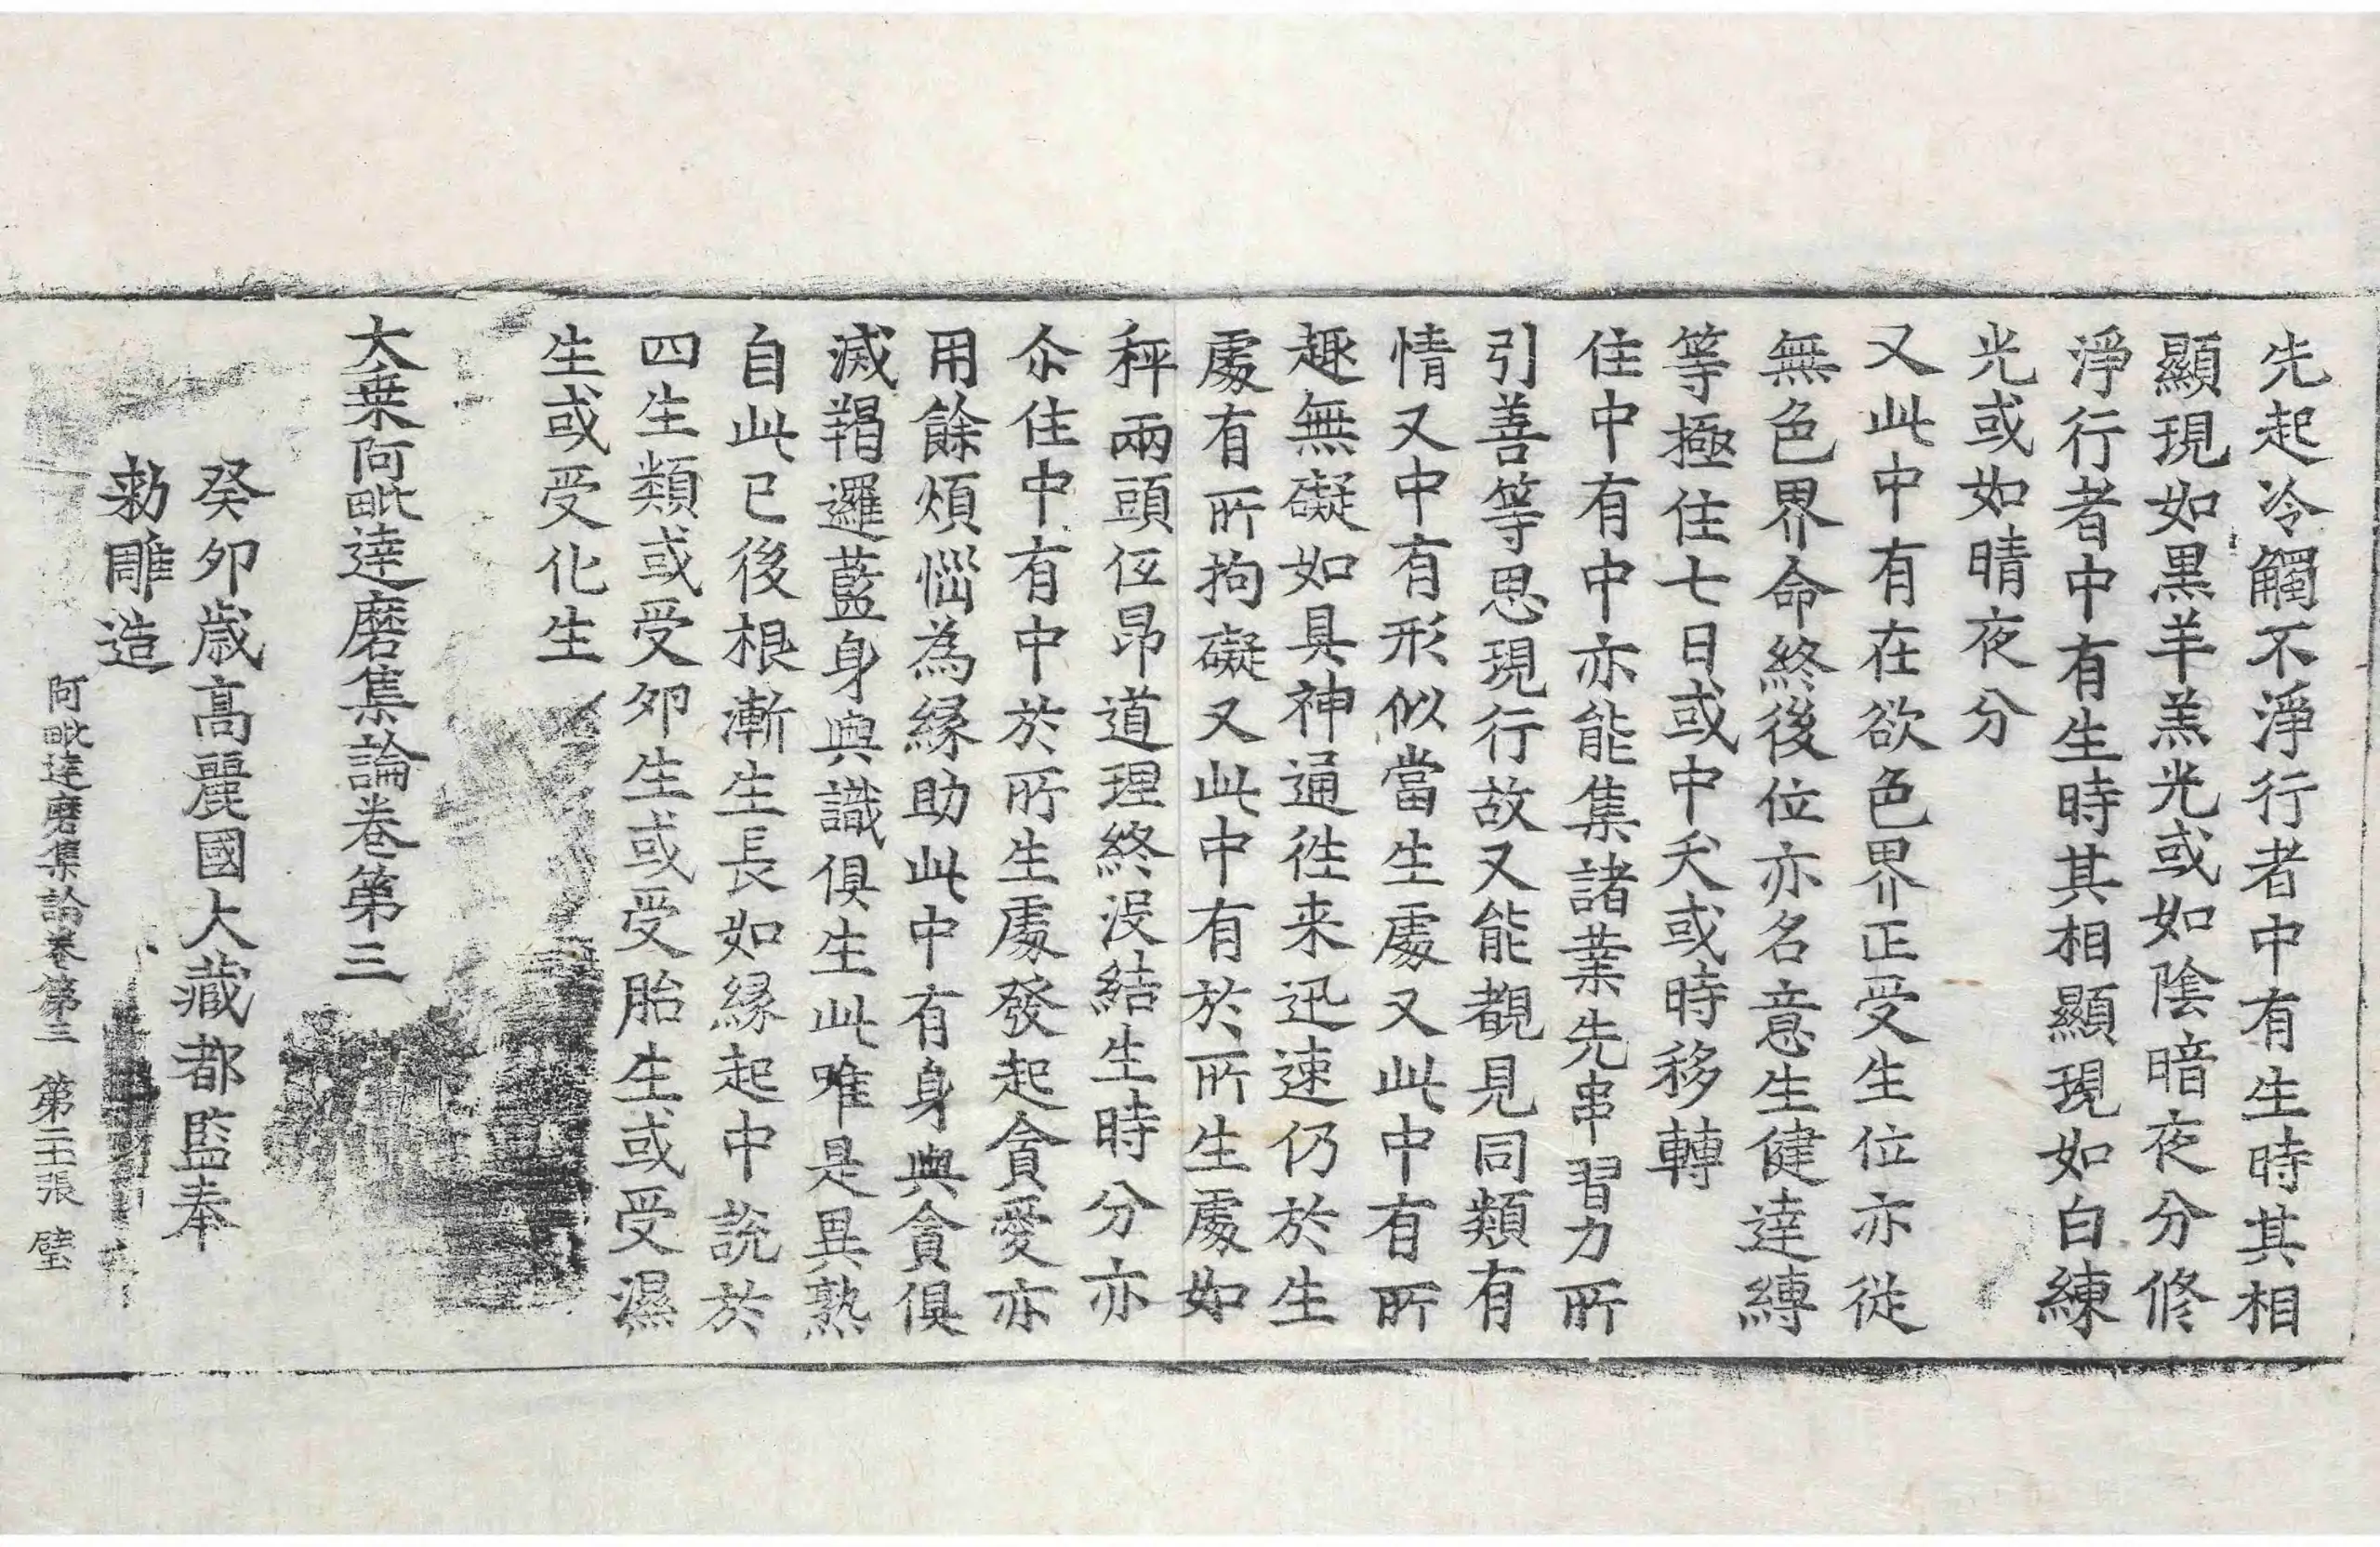 先起冷觸不淨行者中有生時其相
顯現如黒羊羔光或如陰暗夜分修
淨行者中有生時其相顯現如白練
光或如晴夜分
又此中有在欲色界正受生位亦従
無色界命終後位亦名意生健達縛
等極住七日或中夭或時移轉
住中有中亦能集諸業先串習力所
引善等思現行故又能覩見同類有
情又中有形似當生處又此中有所
趣無礙如具神通徃来迅速仍於生
處有所拘礙又此中有於所生處如
秤兩頭伍昂道理終没結生時分亦
尒住中有中於所生處發起貪愛亦
用餘煩惱為縁助此中有身與貪俱
滅羯邏藍身與識俱生此唯是異熟
自此已後根漸生長如縁起中說於
四生類或受卵生或受胎生或受濕
生或受化生
大乗阿毗達磨集論卷第三
癸卯歲髙麗國大藏都監奉
勑雕造
阿毗達磨集論卷第三 第二十張 璧